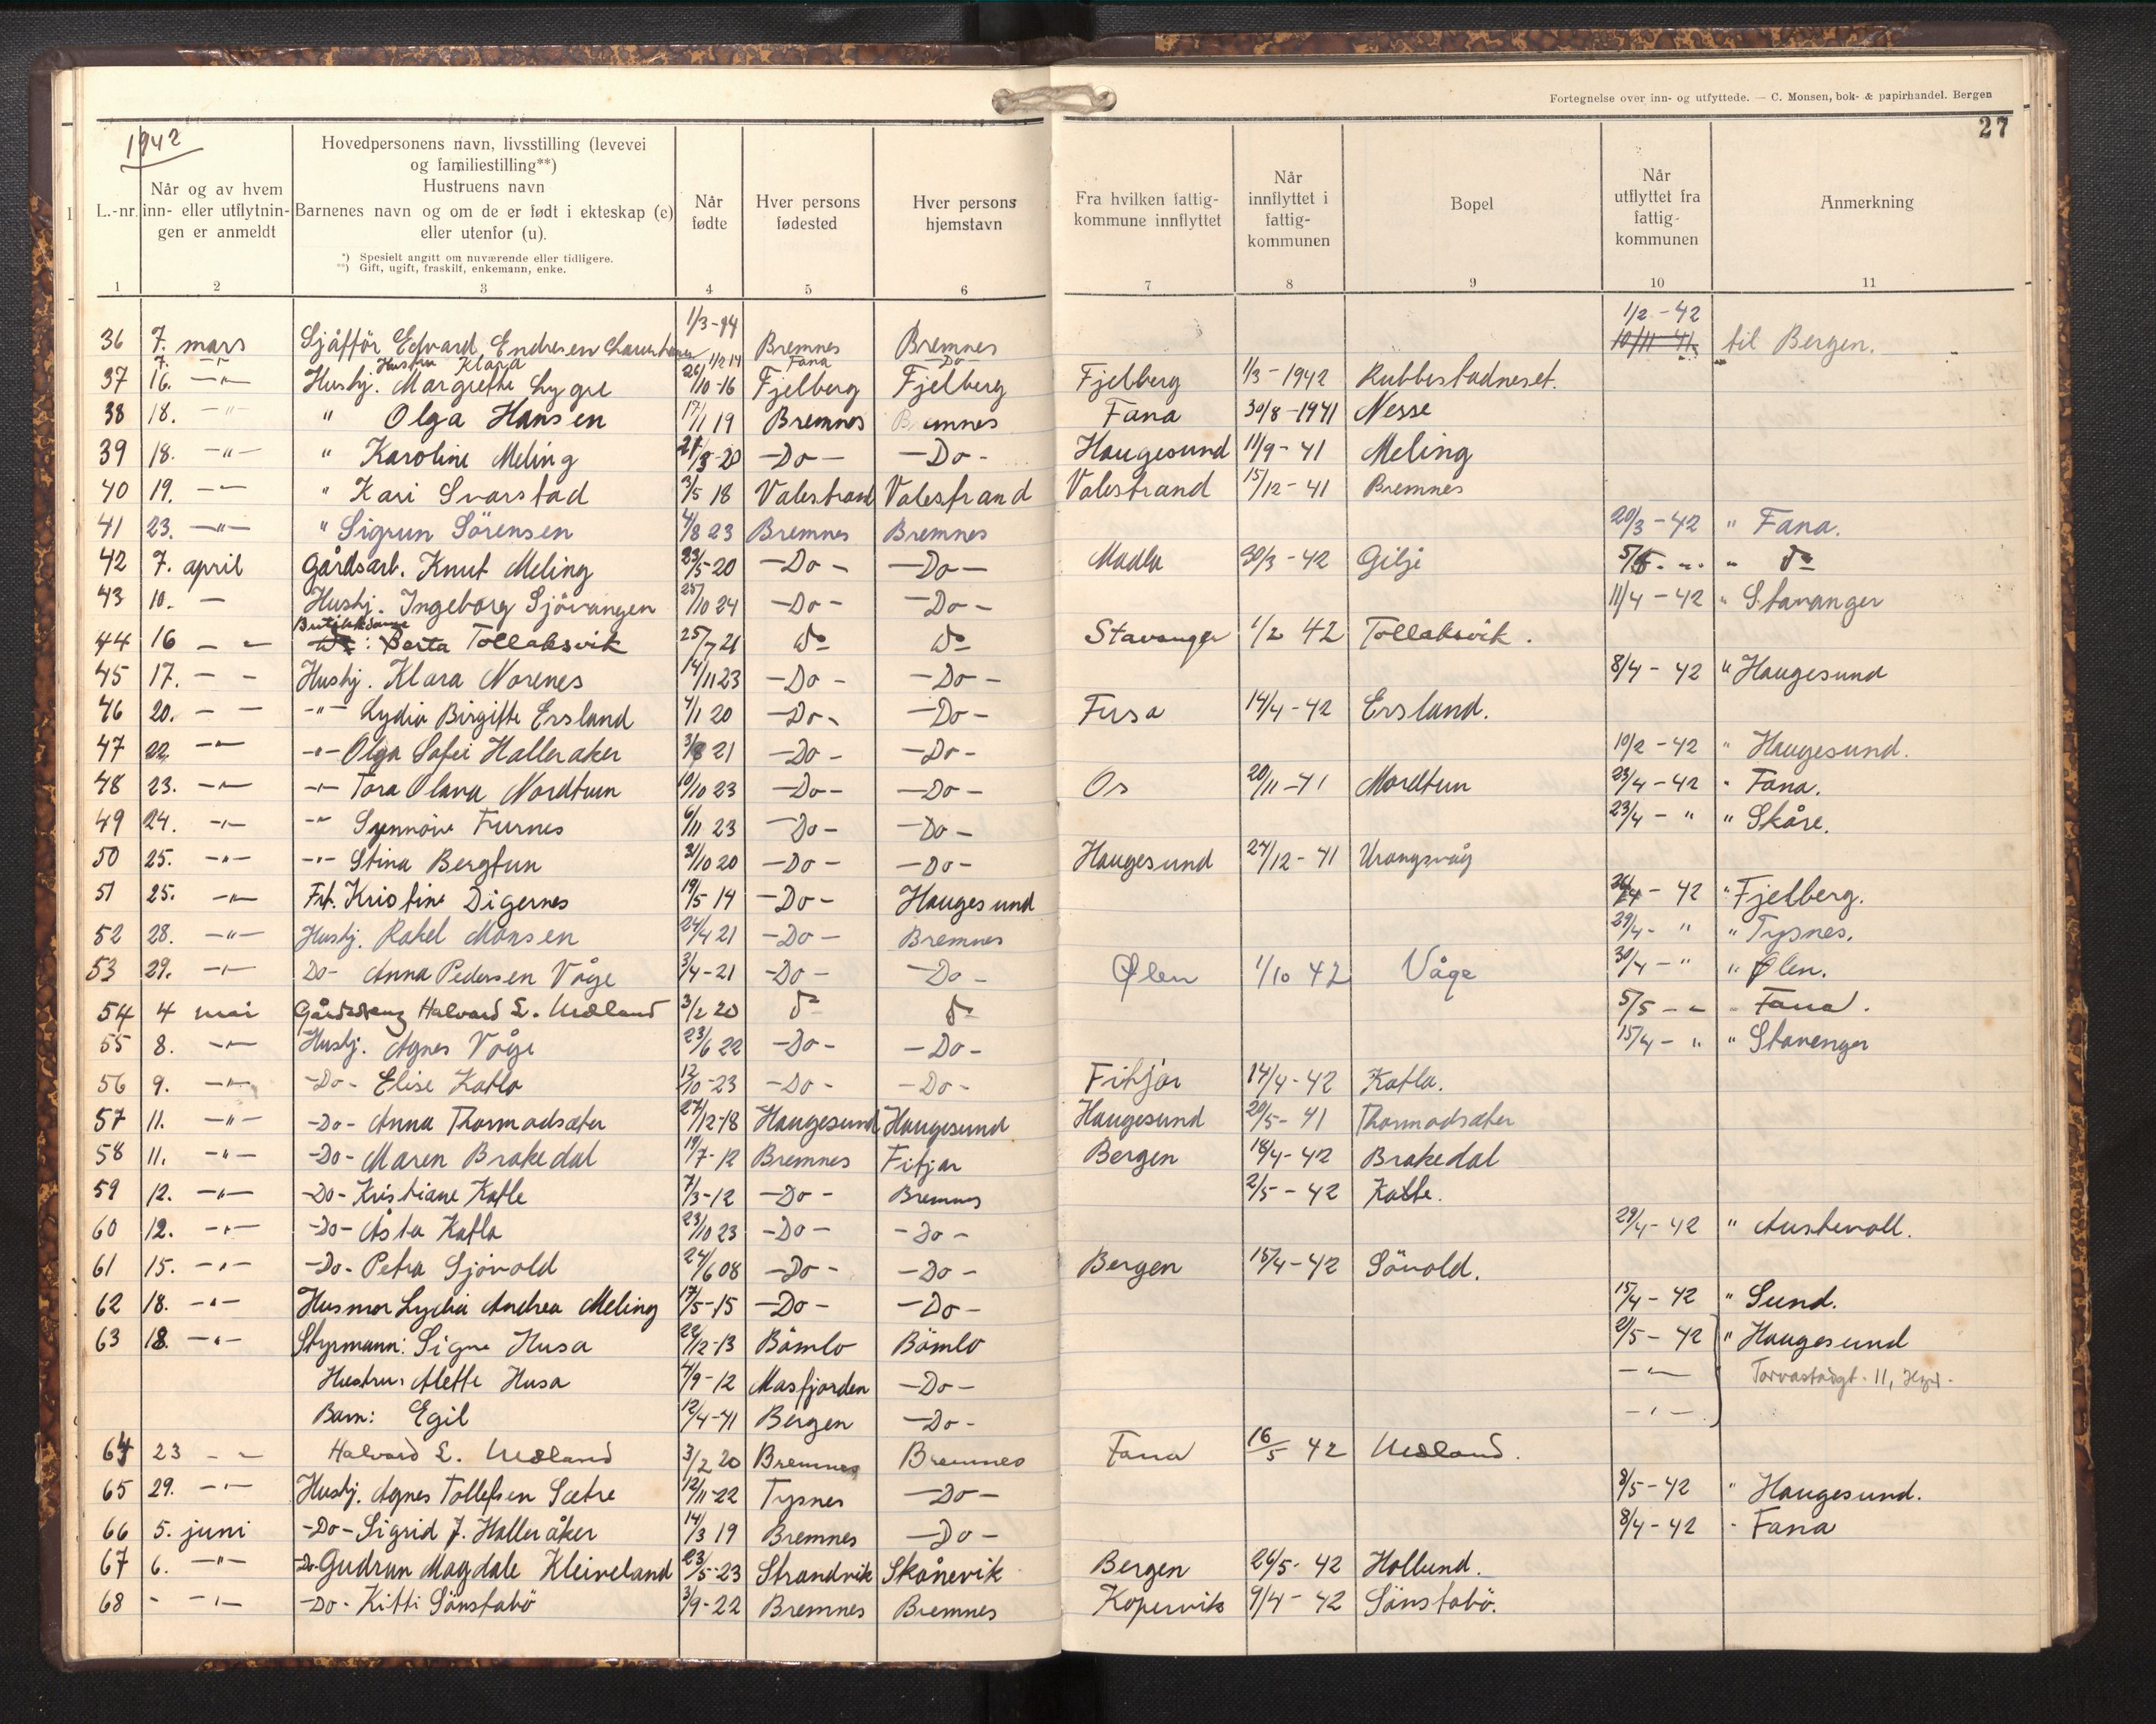 Fortegnelse over inn- og utflyttede. — C. Monsen, bok- & papirhandel. Bergen
27
1942
L.-nr.
Når og av hvem inn- eller utflytningen er anmeldt
Hovedpersonens navn, livsstilling (levevei og familiestilling**)
Hustruens navn
Barnenes navn og om de er født i ekteskap (e) eller utenfor (u).
*) Spesielt angitt om nuværende eller tidligere.
**) Gift, ugift, fraskilt, enkemann, enke.
Når fødte
Hver persons fødested
Hver persons hjemstavn
Fra hvilken fattigkommune innflyttet
Når innflyttet i fattigkommunen
Bopel
Når utflyttet fra fattigkommunen
Anmerkning
1 2 3 4 5 6 7 8 9 10 11
36 7. mars Sjåfför Edvard Endresen 1/3-94 Bremnes Bremnes 1/2-42 10/11-41 til Bergen.
7. -"- Hustru Klara Fana Do
37 16. -"- Hushj. Margrethe Lygre 26/10-16 Fjelberg Fjelberg Fjelberg 1/3-1942 Rubbestadneset.
38 18. -"- " Olga Hansen 17/1 19 Bremnes Bremnes Fana 30/8-1941 Nesse
39 18. -"- " Karoline Meling 21/3-20 -Do- -Do- Haugesund 11/9-41 Meling
40 19. -"- " Kari Svarstad 3/5 18 Valestrand Valestrand Valestrand 15/12-41 Bremnes
41 23. -"- " Sigrun Sörensen 4/8 23 Bremnes Bremnes 20/3-42 " Fana.
42 7. april Gårdsarb. Knut Meling 23/5-20 -Do- -Do- Madla 30/3-42 Gilje 5/5. -"- " do
43 10. - Hushj. Ingeborg Sjövangen 25/10 24 -Do- -Do- 11/4-42 " Stavanger
44 16 - - Butikkdame : Berta Tollaksvik 25/7 21 do do Stavanger 1/2 42 Tollaksvik.
45 17. - - Hushj. Klara Norenes 14/11 23 -Do- -Do- 8/4-42 " Haugesund
46 20. - - -"- Lydia Birgitte Ersland 4/1 20 -Do- -Do- Fusa 14/4-42 Ersland.
47 22. -"- -"- Olga Sofei Halleraker 3/8 21 -Do- -Do- 10/2-42 " Haugesund.
48 23. -"- -"- Tora Olava Nordtun 10/10 23 -Do- -Do- Os 20/11-41 Mordtun 23/4-42 " Fana.
49 24. -"- -"- Synnöve Furnes 6/11 23 -Do- -Do- 23/4-" " Skåre.
50 25. -"- -"- Stina Bergtun 31/10 20 -Do- -Do- Haugesund 27/12-41 Urangsvåg
51 25. -"- Frk. Kristine Digernes 19/5 14 -Do- Haugesund 42 " Fjelberg.
52 28. -"- Hushj. Rakel Monsen 24/4 21 -Do- Bremnes 29/4-" " Tysnes.
53 29. -"- Do- Anna Pedersen Våge 3/4-21 -Do- -Do- Ølen 1/10 42 Våge 30/4-" " Ølen.
54 4 mai Gårdsdreng Halvard L. Uodland 3/2 20 do do 5/5 - - " Fana.
55 8. -"- Hushj. Agnes Våge 23/6 22 -Do- -Do- 15/4-" " Stavenger
56 9. -"- -Do- Elise Katla 12/10-23 -Do- -Do- Fitjar 14/4-42 Katla.
57 11. -"- -Do- Anna Thormodsæter 27/12-18 Haugesund Haugesund Haugesund 20/5-41 Thormodsæter
58 11. -"- -Do- Maren Brakedal 19/7-12 Bremnes Fitjar Bergen 18/4-42 Brakedal
59 12. -"- -Do- Kristiane Katle 7/3-12 -Do- Bremnes 2/5-42 Katle.
60 12. -"- -Do- Åsta Katla 23/10 23 -Do- -Do- 29/4-42 " Austevoll.
61 15. -"- -Do- Petra Sjövold 24/6 08 -Do- -Do- Bergen 15/4-42 Sövold.
62 18. -"- Husmor Lydia Andrea Meling 17/5-15 -Do- -Do- 15/4-42 " Sund.
63 18. -"- Styrmann: Signe Husa 22/12-13 Bömlo Bömlo 2/5-42 " Haugesund
Hustru: Alette Husa 4/9-12 Masfjorden -Do- -"- Torvastadgt. 11, Hgsd.
Barn: Egil 12/4-41 Bergen -Do- -"-
64 23 - - Halvard L. 3/2 20 Bremnes Bremnes Fana 16/5 42
65 29. -"- Hushj. Agnes Tollefsen Sætre 12/11-22 Tysnes -Do- 8/5-42 " Haugesund.
66 5. juni -Do- Sigrid J. Halleråker 14/3 19 Bremnes -Do- 8/4-42 - Fana
67 6. -"- -Do- Gudrun Magdale Kleiveland 23/5-23 Strandvik Skånevik Bergen 26/5-42 Hollund.
68 - -"- -Do- Kitti Sönstabö 3/9-22 Bremnes Bremnes Kopervik 9/4-42 Sönstabö.